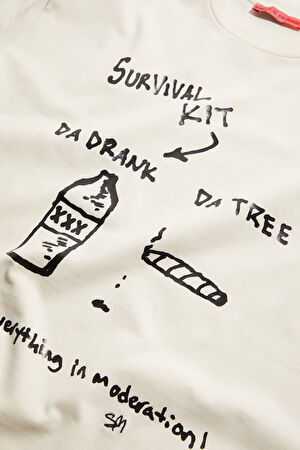 SURVIVAL
KIT
DA DRANK
DA TREE
XXX
everything in moderation!
SM